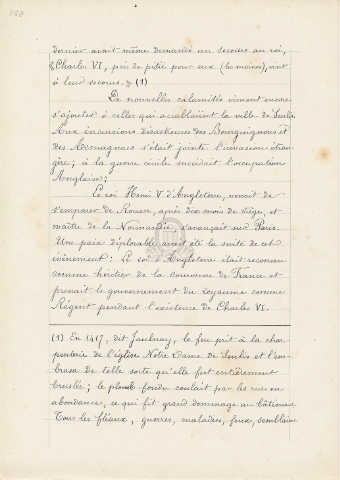 dernier avait même demandé un secours au roi,
Charles VI, pris de pitié pour eux (les moines), vint
à leur secours. » (1)
De nouvelles calamités vinrent encore
s'ajouter à celles qui accablaient la ville de Senlis.
Aux incursions désastreuses des Bourguignons et
des Armagnacs s'était jointe l'invasion étran-
gère ; à la guerre civile succédait l'occupation
Anglaise ;
Le roi Henri V d'Angleterre, venait de
s'emparer de Rouen, après dix mois de siège, et
maître de la Normandie s'avançait sur Paris.
Une paix déplorable avait été la suite de cet
évènement : Le roi d'Angleterre était reconnu
comme héritier de la couronne de France et
prenait le gouvernement du royaume comme
Régent pendant l'existence de Charles VI.
(1) En 1417, dit Jaulnay, le feu prit à la char-
penterie de l'église Notre Dame de Senlis et l'em-
brasa de telle sorte qu'elle fut entièrement
bruslée ; le plomb fondu coulait par les rues en
abondance, ce qui fit grand dommage au bâtiment
Tous les fléaux, guerres, maladies, feux, semblaient